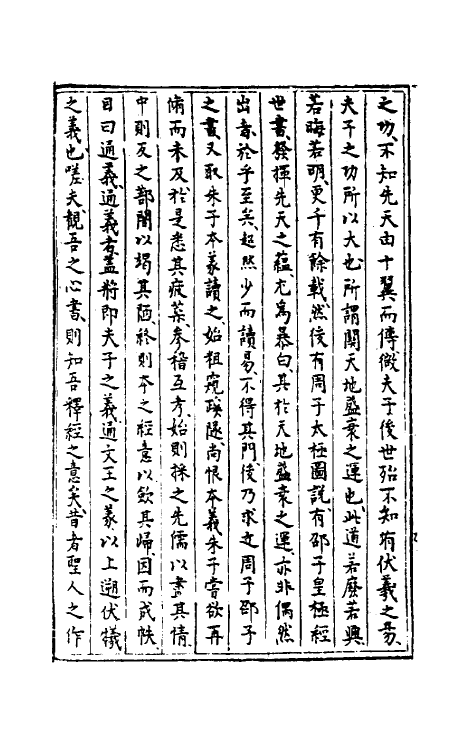 之功、不知先天由十翼而傳、微夫子、後世殆不知有伏羲之易、
夫子之功所以大也、所謂關天地盛衰之運也、此道若廢若興、
若晦若明、更千有餘載、然後有周子太極圖說、有邵子皇極經
世書、發揮先天之蘊、尤為暴白、其於天地盛衰之運、亦非偶然
出者、於乎至矣、超然少而讀易、不得其門、後乃求之周子邵子
之書、又取朱子本義讀之、始粗窺蹊隧、尚恨本義朱子嘗欲再
脩而未及、於是悉其疲薾、參稽互考、始則採之先儒以盡其情、
中則反之部闇以竭其陋、終則本之經意以歛其歸、因而成帙、
目曰通義、通義者、蓋將即夫子之義、通文王之彖、以上遡伏犧
之義也、嗟夫、觀吾之心書、則知吾釋經之意矣、昔者聖人之作